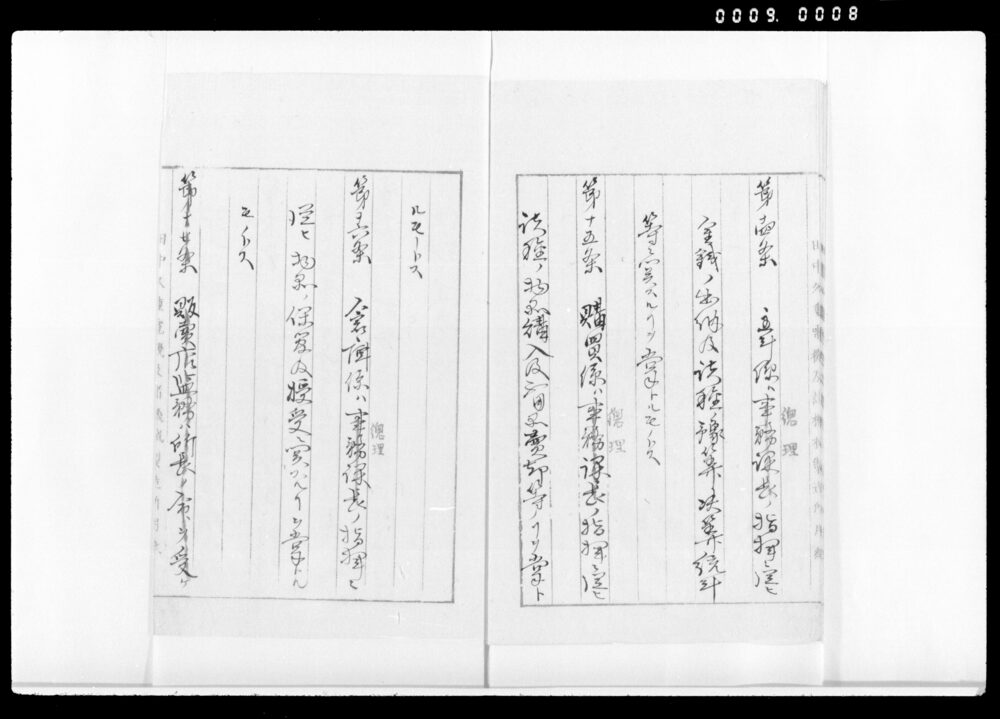 0009. 0008
第十四条 主計係ハ事務課長ノ指揮ニ従ヒ
総理
金銭ノ出納及諸種ノ予算決算統計
等ニ関スルヿヲ掌トルモノトス
第十五条 購買係ハ事務課長ノ指揮ニ従ヒ
総理
諸種ノ物品購入及不用品売却等ノヿヲ掌ト
ルモノトス
第十六条 倉庫係ハ事務課長ノ指揮ニ
総理
従ヒ物品ノ保管及授受ニ関スルヿヲ掌トル
モノトス
第十七条 販売店監務ハ所長ノ命ヲ受ケ